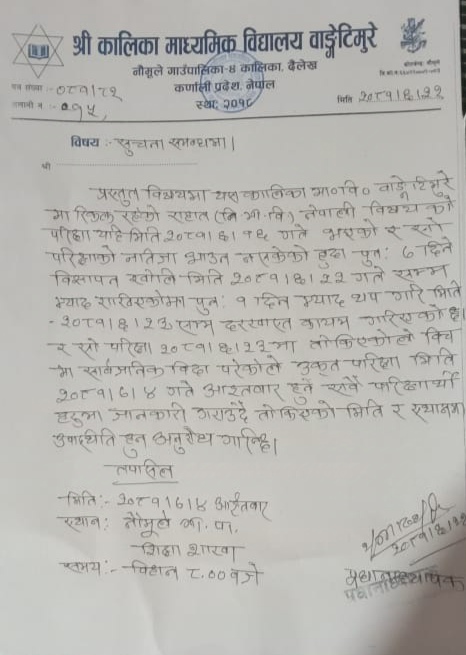 श्री कालिका माध्यमिक विद्यालय वाङ्गेटिमुरे
नौमूले गाउँपालिका-४ कालिका, दैलेख
कर्णाली प्रदेश, नेपाल
स्था: २०१८
पत्र संख्या :- ०८१/८२
चलानी नं :- ०१५
मिति २०८१/६/२२
विषय :- सुचना सम्बन्धमा।
श्री
प्रस्तुत विषयमा यस कालिका मा०वि० वाङ्गेटिमुरे
मा रिक्त रहेको राहात (नि.मा.वि) नेपाली विषय को
परिक्षा यहि मिति २०८१/६/१६ गते भएको र सो
परिक्षाको नतिजा आउन नसकेको हुदा पुन: ७ दिने
विज्ञापन खोलि मिति २०८१/६/२२ गते सम्म
म्याद राखिएकोमा पुन: १ दिन म्याद थप गरि मिति
- २०८१/६/२३ सम्म दरखास्त कायम गरिएको छ।
र सो परिक्षा २०८१/६/२३ मा तोकिएकोले विच
मा सार्वजनिक विदा परेकोले उक्त परिक्षा मिति
२०८१/७/४ गते आइतवार हुने सबै परिक्षार्थी
हरुमा जानकारी गराउदै तोकिएको मिति र स्थानमा
उपस्थिति हुन अनुरोध गरिन्छ।
तपासिल
मिति :- २०८१/७/४ आईतवार
स्थान:- नौमूले गा. पा.
शिक्षा शाखा
समय :- विहान ८.०० बजे
२०८१/६/२२
प्रधानाध्यापक